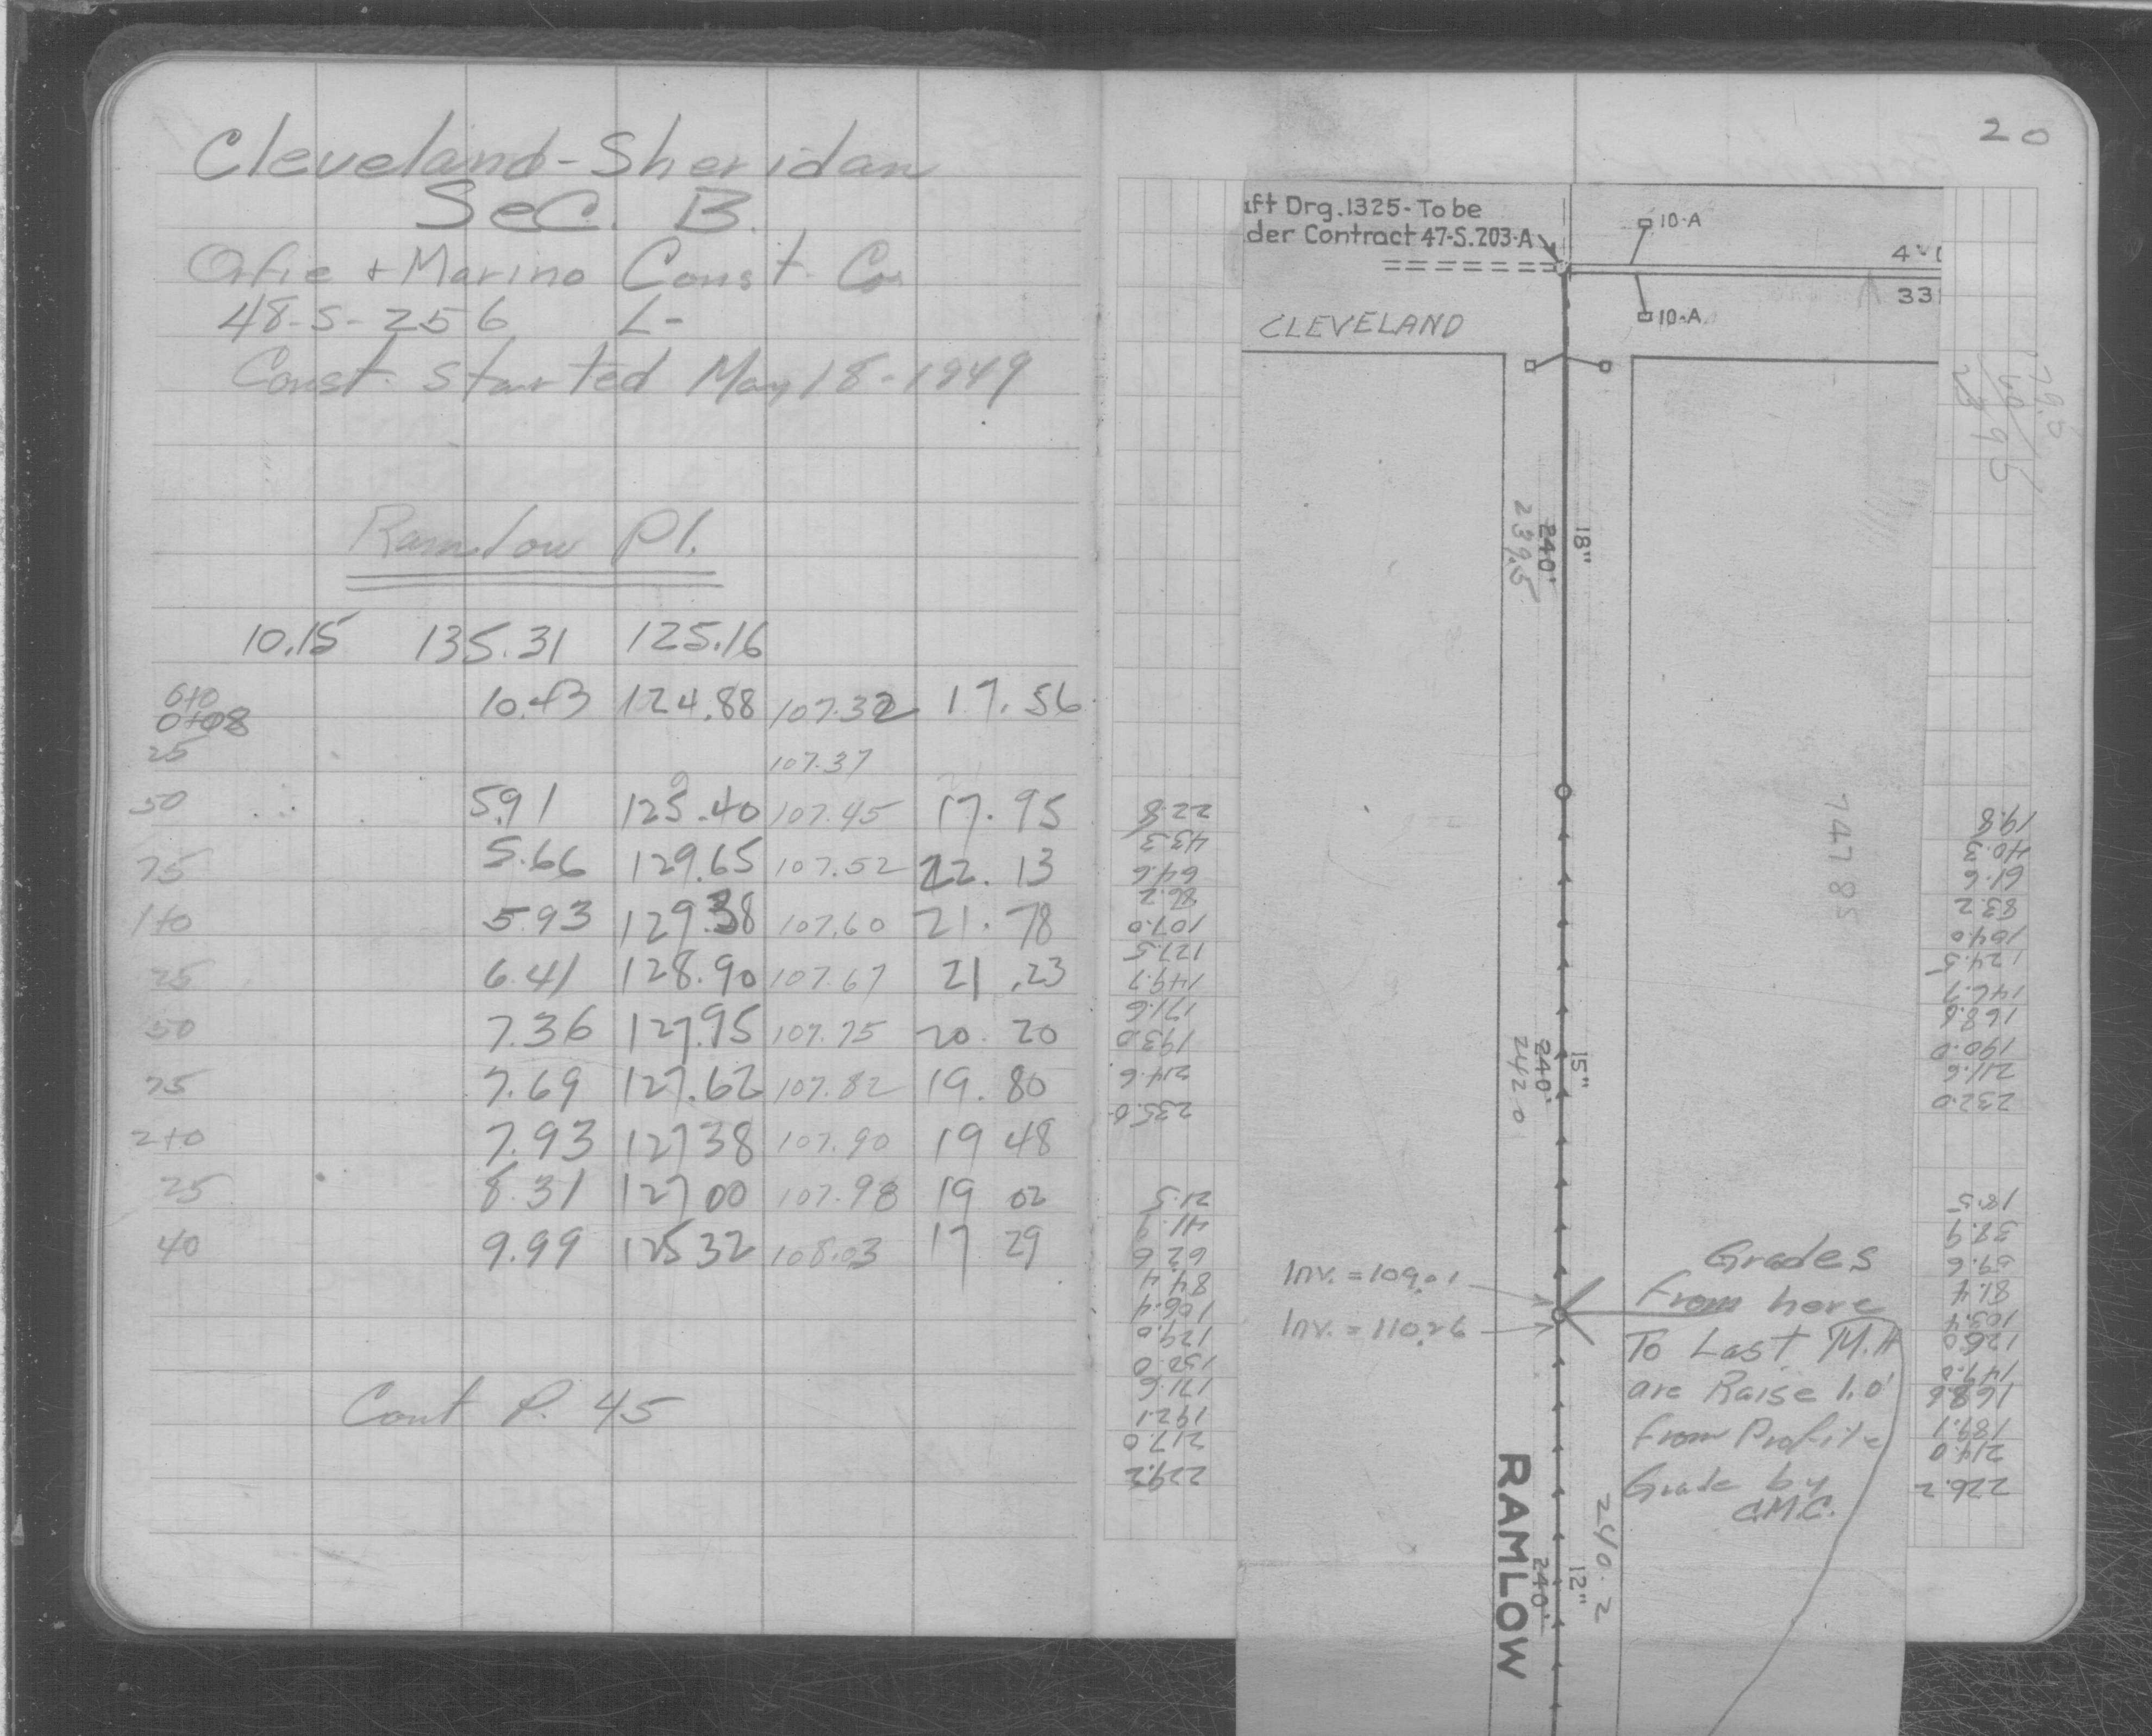 Cleveland-Sheridan
Sec. B.
Orfie + Marino Const. Co
48-S-256 L-
Const. Started May 18-1949
Ramlow Pl.
10.15 135.31 125.16
0+0 10.43 124.88 107.32 17.56
0+08
25 107.37
50 5.91 125.40 107.45 17.95
75 5.66 129.65 107.52 22.13
1+0 5.93 129.38 107.60 21.78
25 6.41 128.90 107.67 21.23
50 7.36 127.95 107.75 20.20
75 7.69 127.62 107.82 19.80
2+0 7.93 12738 107.90 19 48
25 8.31 12700 107.98 19 02
40 9.99 12532 108.03 17 29
Cont P. 45
20
aft Drg.1325-To be
der Contract 47-S.203-A
10-A
10-A
33
CLEVELAND
18"
240'
239.5
22.8
43.3
64.6
86.2
107.0
127.5
149.7
171.6
193.0
214.6
235.0
15"
240'
242.0
74785
19.8
40.3
61.6
83.2
104.0
124.5
146.7
168.6
190.0
211.6
232.0
21.5
41.9
62.6
84.4
106.4
129.0
152.0
171.6
192.1
217.0
229.2
Inv. = 109.01
Inv. = 110.26
Grades
From here
To Last M.H
are Raise 1.0'
from Profile
Grade by
C.M.C.
18.5
38.9
59.6
81.4
103.4
126.0
149.0
168.6
189.1
214.0
226.2
RAMLOW
12"
240'
240.2